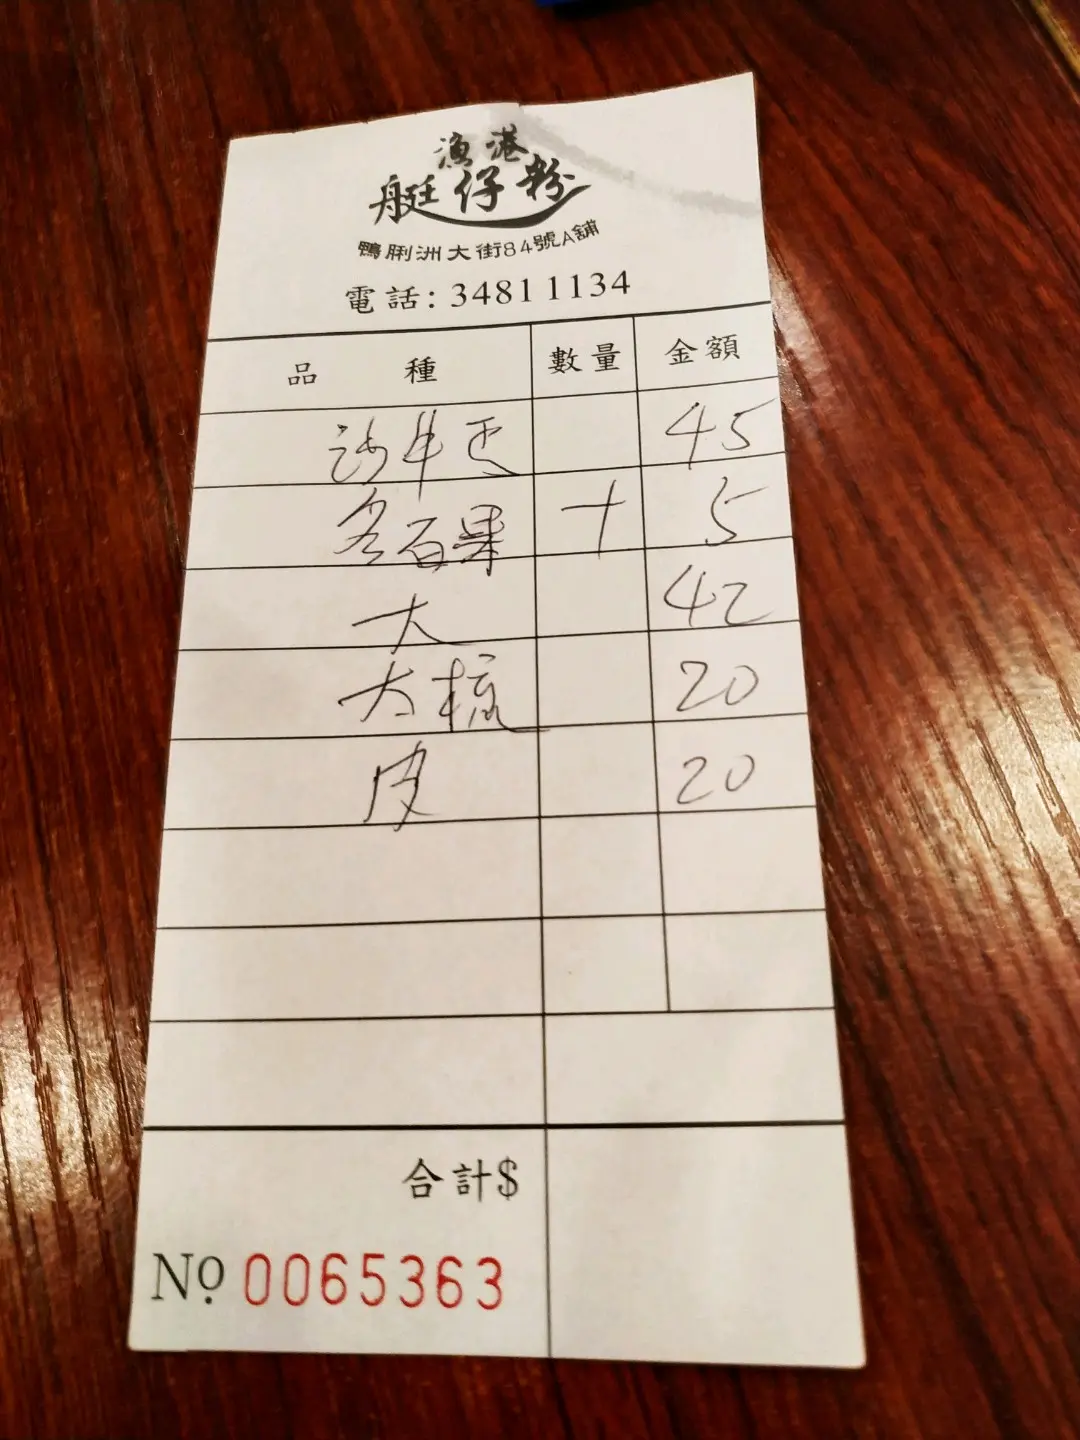 漁港
艇仔粉
鴨脷洲大街84號A舖
電話: 3481 1134
品種 數量 金額
沙牛 45
百果 十 5
大 42
大 20
皮 20
合計$
No. 0065363